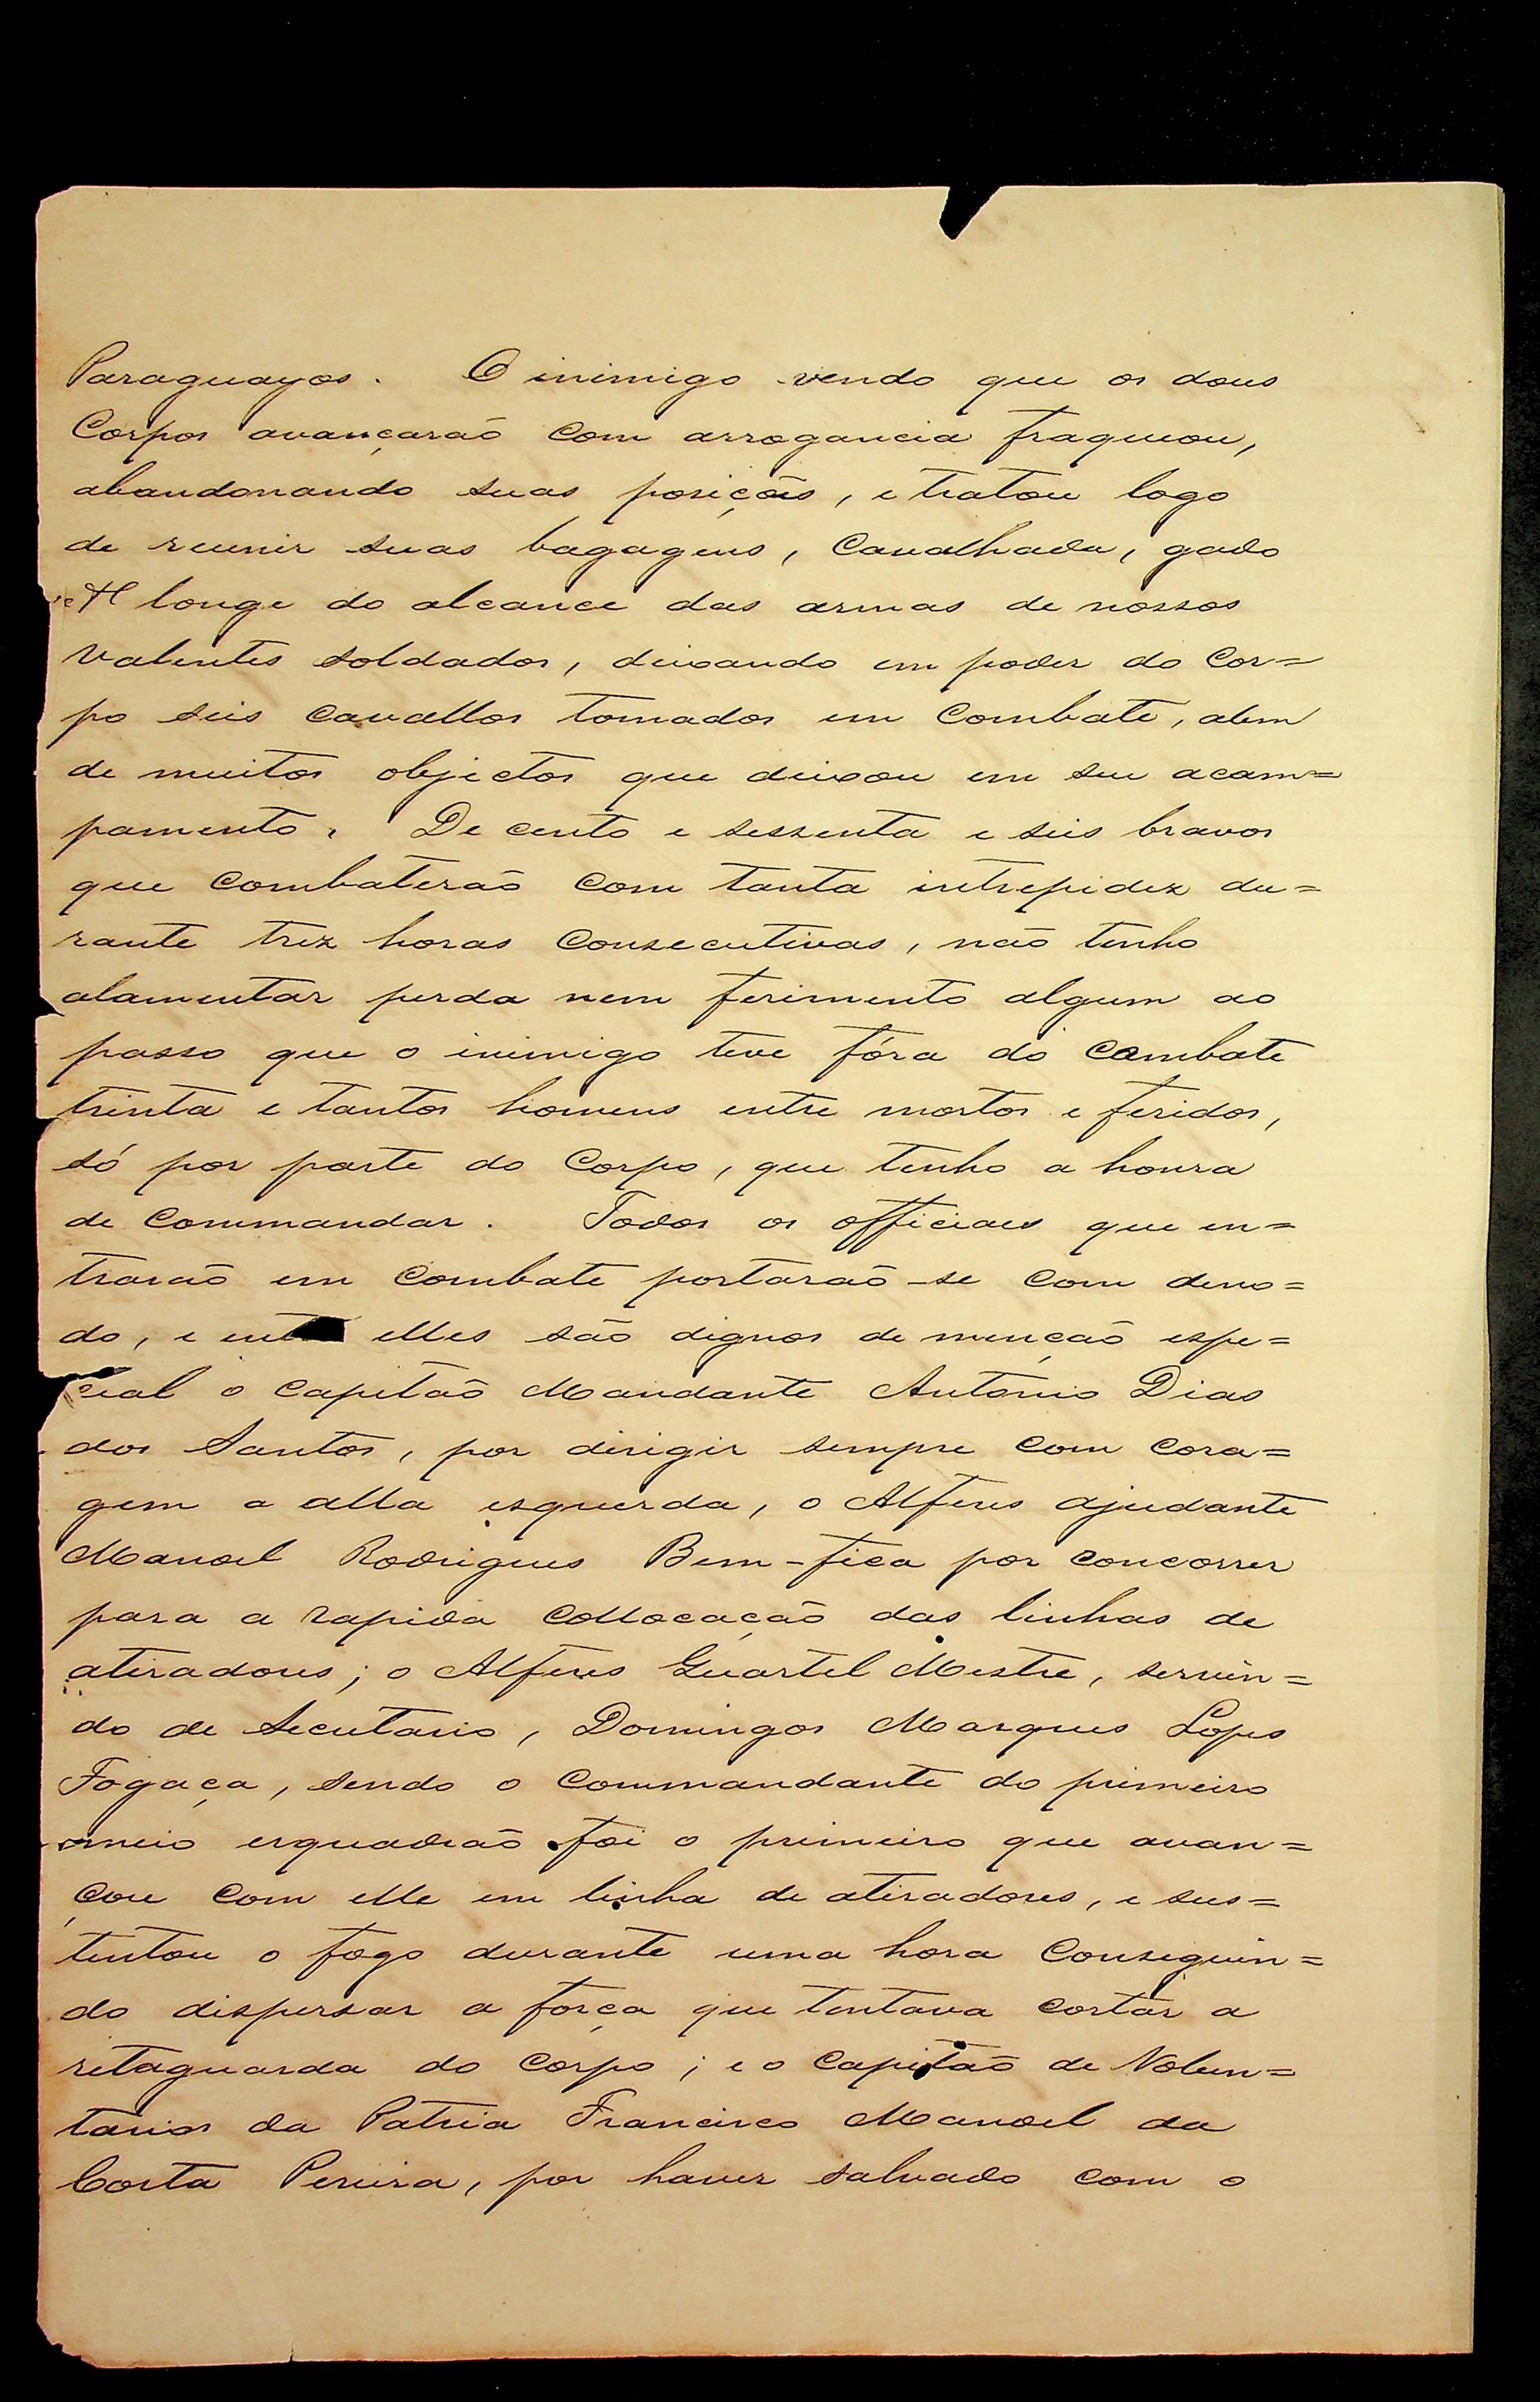 Paraguayos. O inimigo vendo que os dous
Corpos avançarão com arrogancia fraqueou,
abandonando suas posições, e tratou logo
de reunir suas bagagens, Cavalhada, gado
longe do alcance das armas de nossos
valentes soldados, deixando em poder do Cor=
po seis cavallos tomados em Combate, alem
de muitos objectos que deixou em seu acam=
pamento. De cento e sessenta e seis bravos
que combaterão com tanta intrepidez du=
rante trez horas consecutivas, não tenho
alamentar perda nem ferimento algum ao
passo que o inimigo teve fóra do combate
trinta e tantos homens entre mortos e feridos,
só por parte do Corpo, que tenho a honra
de Commandar. Todos os officiaes que en=
trarão em Combate portarão-se com deno=
do, e ent elles são dignos de menção espe=
cial o Capitão Mandante Antonio Dias
dos Santos, por dirigir sempre com cora=
gem a alla esquerda, o Alferes ajudante
Manoel Rodrigues Bem-fica por concorrer
para a rapida collocação das linhas de
atiradores; o Alferes Quartel Mestre, servin=
do de Secretario, Domingos Marques Lopes
Fogaça, sendo o Commandante do primeiro
meio esquadrão foi o primeiro que avan=
çou com elle em linha de atiradores, e sus=
tentou o fogo durante uma hora Conseguin=
do dispersar a força que tentava cortar a
retaguarda do Corpo; e o Capitão de Volun=
tarios da Patria Francisco Manoel da
Costa Pereira, por haver salvado com o